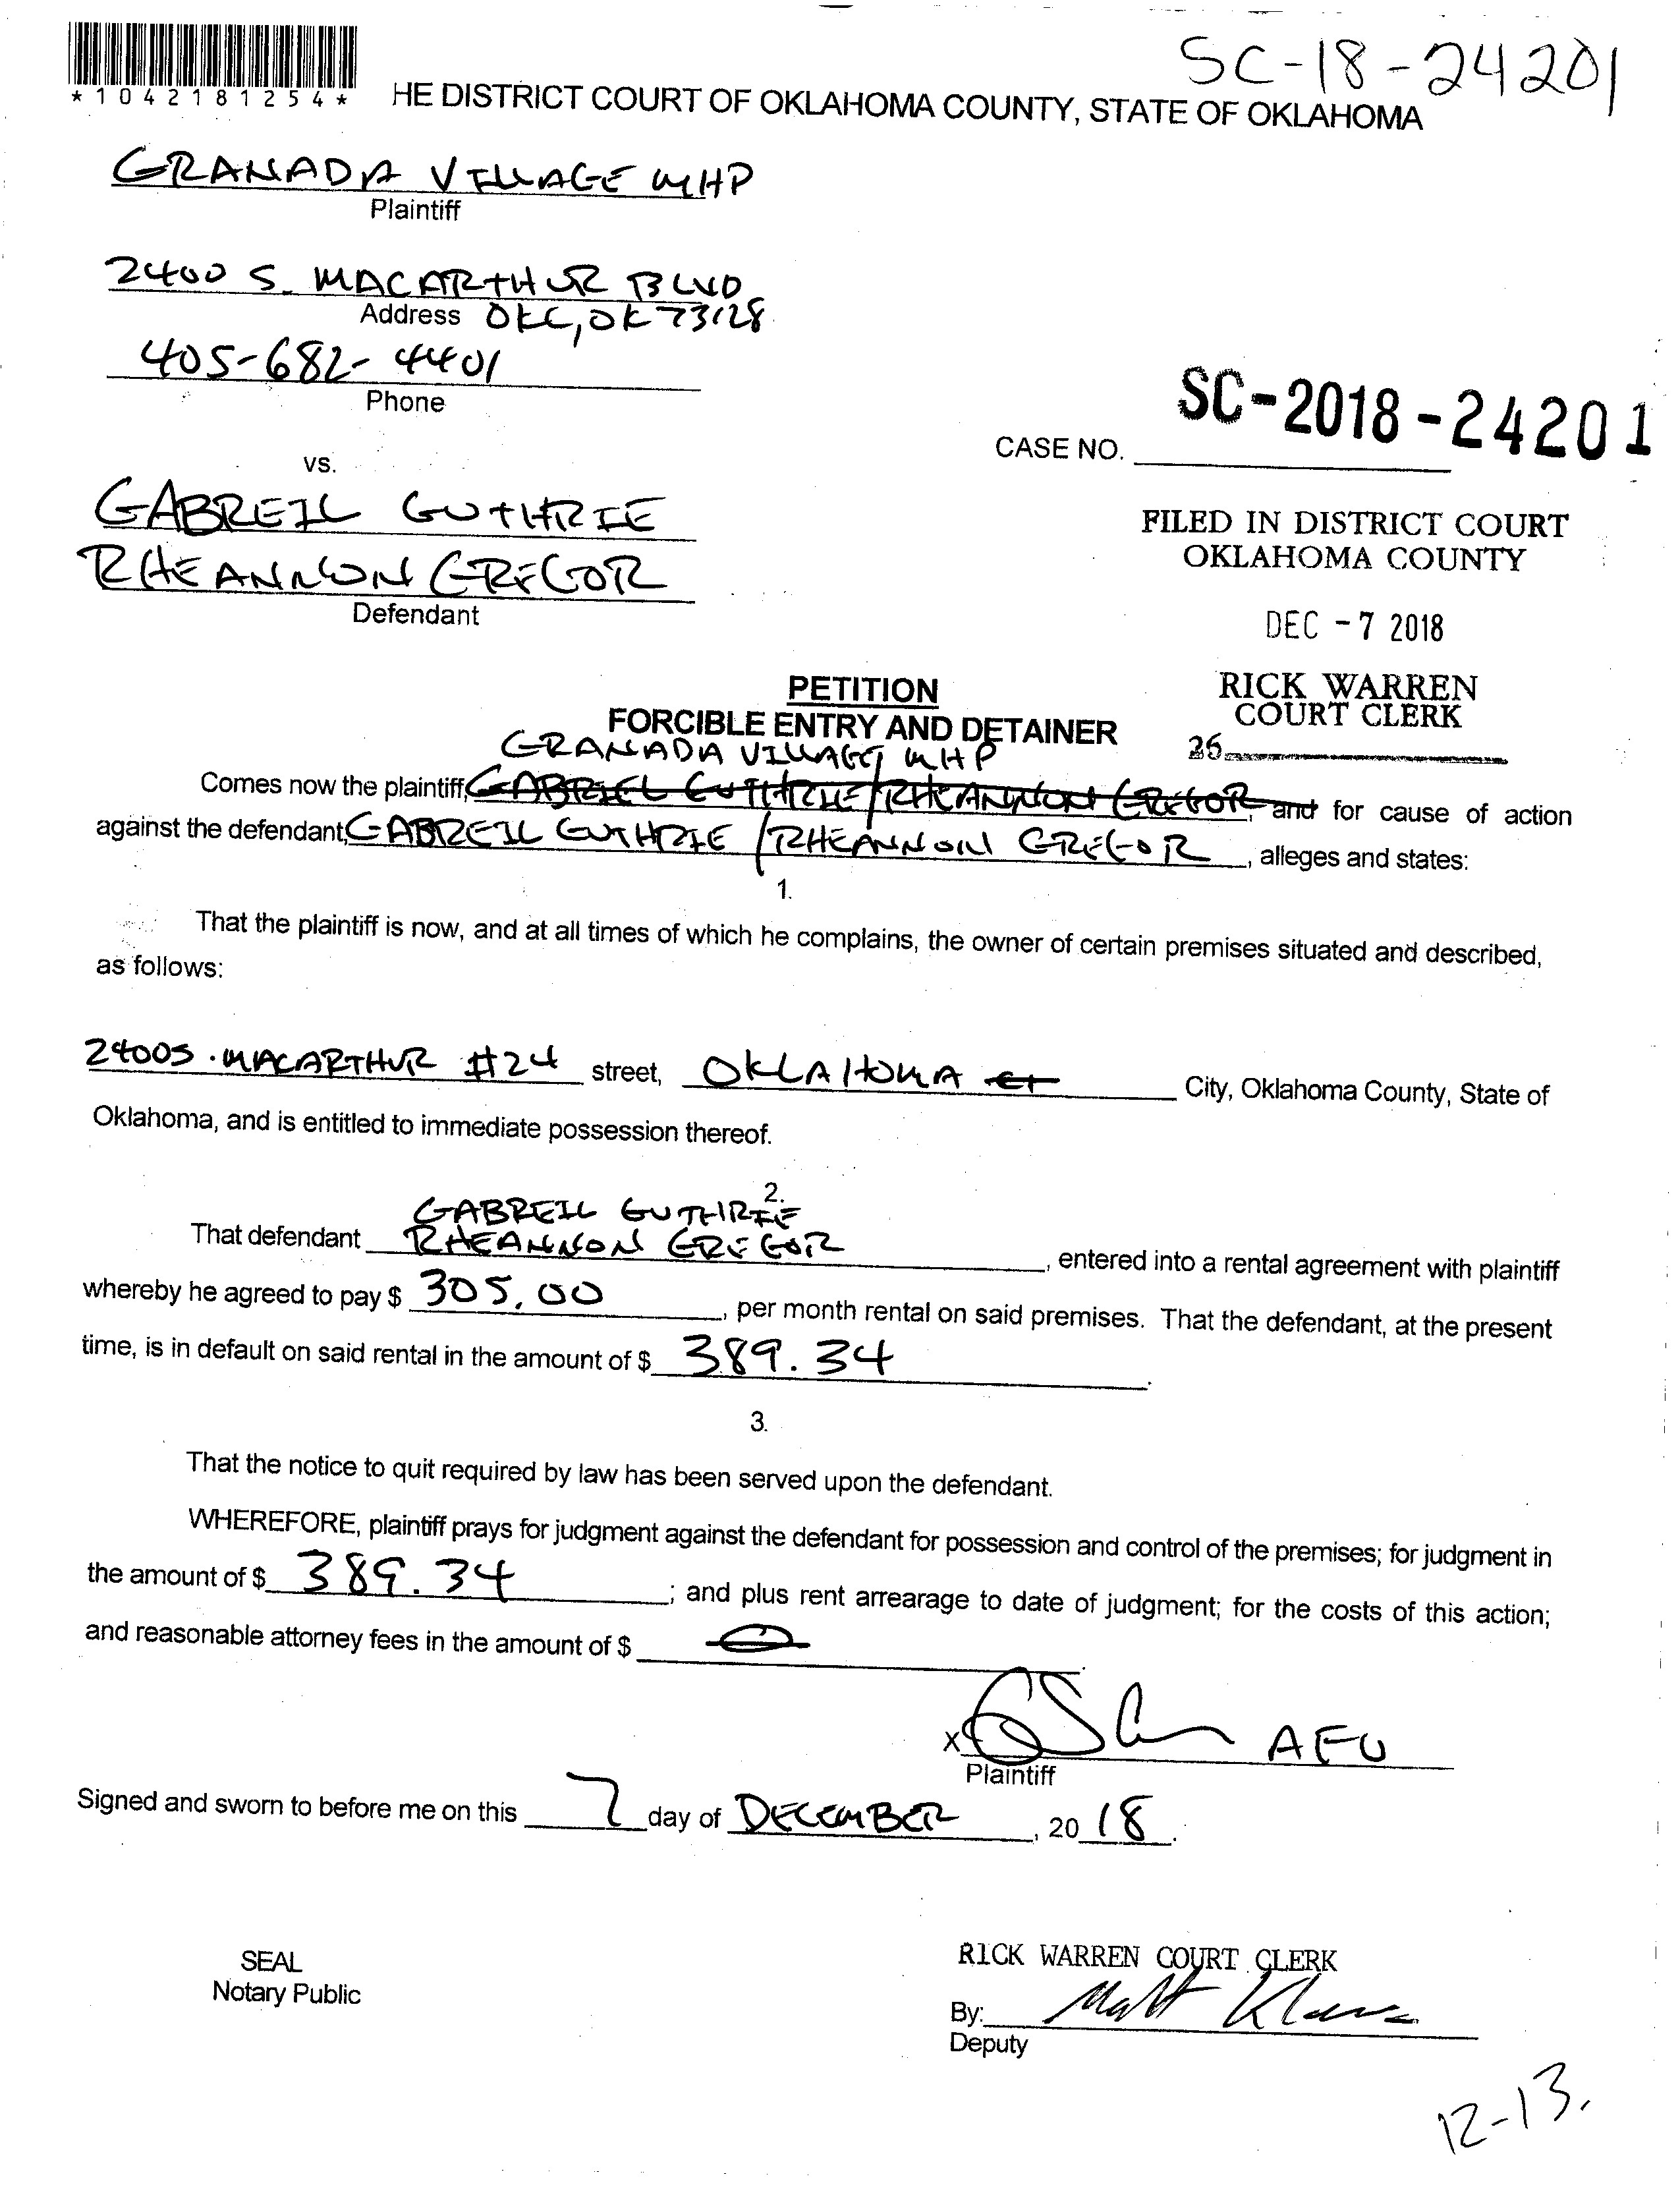 SC-18-24201
*1042181254*
HE DISTRICT COURT OF OKLAHOMA COUNTY, STATE OF OKLAHOMA
GRANADA VILLAGE MHP
Plaintiff
2400 S. MACARTHUR BLVD
Address OKC, OK 73128
405-682-4401
Phone
CASE NO. SC-2018-24201
vs.
GABREIL GUTHRIE
RHEANNON GREGOR
Defendant
FILED IN DISTRICT COURT
OKLAHOMA COUNTY
DEC -7 2018
RICK WARREN
COURT CLERK
26
PETITION
FORCIBLE ENTRY AND DETAINER
GRANADA VILLAGE MHP
Comes now the plaintiff, GABRIEL GUTHRIE/RHEANNON GREGOR, and for cause of action
against the defendant, GABREIL GUTHRIE / RHEANNON GREGOR, alleges and states:
1.
That the plaintiff is now, and at all times of which he complains, the owner of certain premises situated and described,
as follows:
2400 S. MACARTHUR #24 street, OKLAHOMA City, Oklahoma County, State of
Oklahoma, and is entitled to immediate possession thereof.
2.
GABREIL GUTHRIE
That defendant RHEANNON GREGOR, entered into a rental agreement with plaintiff
whereby he agreed to pay $ 305.00, per month rental on said premises. That the defendant, at the present
time, is in default on said rental in the amount of $ 389.34.
3.
That the notice to quit required by law has been served upon the defendant.
WHEREFORE, plaintiff prays for judgment against the defendant for possession and control of the premises; for judgment in
the amount of $ 389.34; and plus rent arrearage to date of judgment; for the costs of this action;
and reasonable attorney fees in the amount of $ 0.
X AFU
Plaintiff
Signed and sworn to before me on this 7 day of DECEMBER, 2018.
SEAL
Notary Public
RICK WARREN COURT CLERK
By: Matt
Deputy
12-13.